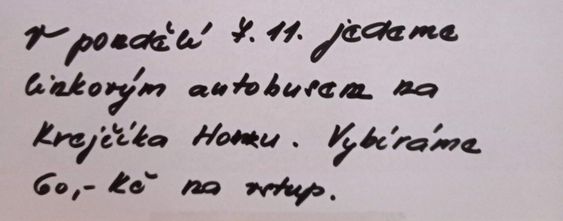 V pondělí 7. 11. jedeme
linkovým autobusem na
Krejčíka Homu. Vybíráme
60,- Kč na vstup.